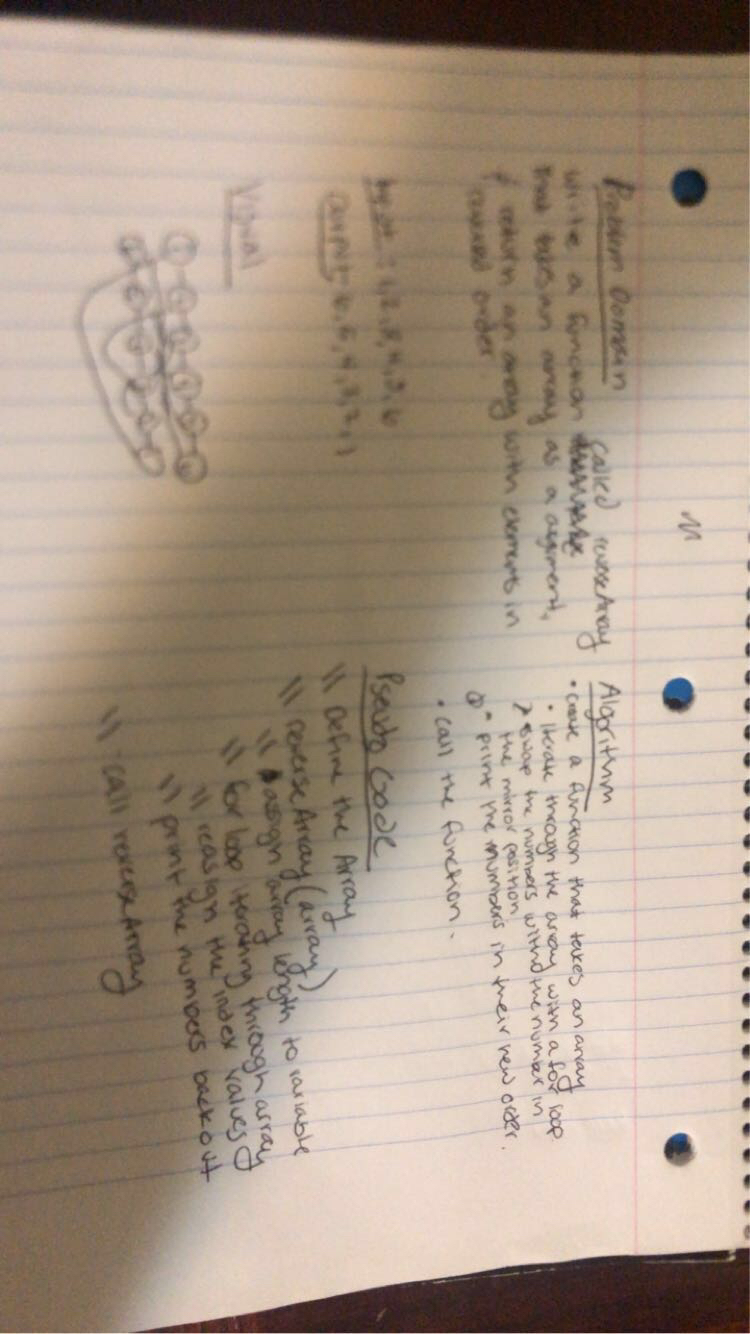 Problem Domain
write a function called reverseArray
that takes an array as a argument,
& return an array with elements in
reversed order.
Input: 1,2,3,4,5,6
Output: 6,5,4,3,2,1
Visual
Algorithm
• create a function that takes an array
• iterate through the array with a for loop
> swap the numbers with the number in
the mirror position
- print the numbers in their new order.
• call the function.
Pseudo Code
\\ Define the Array
\\ reverseArray(array)
\\ assign array length to variable
\\ for loop iterating through array
\\ reasign the index values
\\ print the numbers back out
\\ call reverseArray